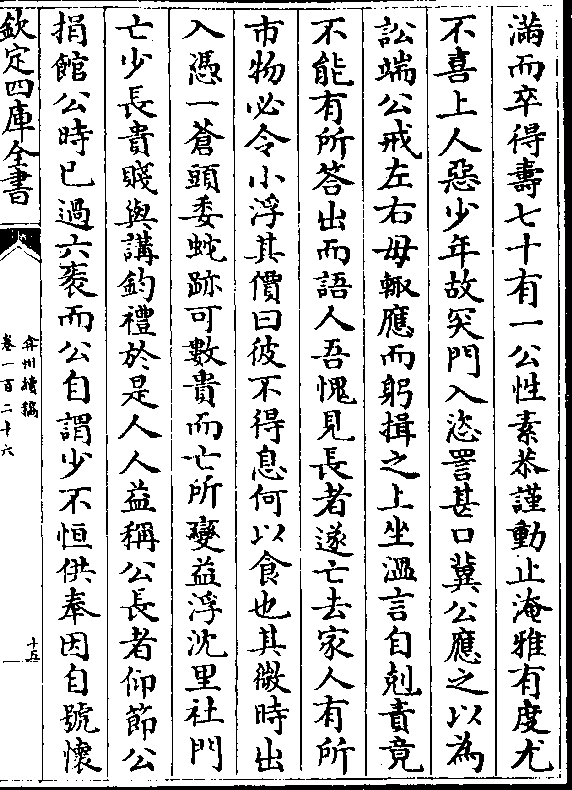 滿而卒得壽七十有一公性素恭謹動止淹雅有度尤
不喜上人惡少年故突門入恣詈甚口冀公應之以為
訟端公戒左右毋輙應而躬揖之上坐溫言自剋責竟
不能有所答出而語人吾愧見長者遂亡去家人有所
市物必令小浮其價曰彼不得息何以食也其微時出
入憑一蒼頭委蛇跡可數貴而亡所變益浮沈里社門
亡少長貴賤與講鈞禮於是人人益稱公長者仰節公
捐館公時已過六袠而公自謂少不恒供奉因自號懷
欽定四庫全書
弇州續稿
卷一百二十六
十五